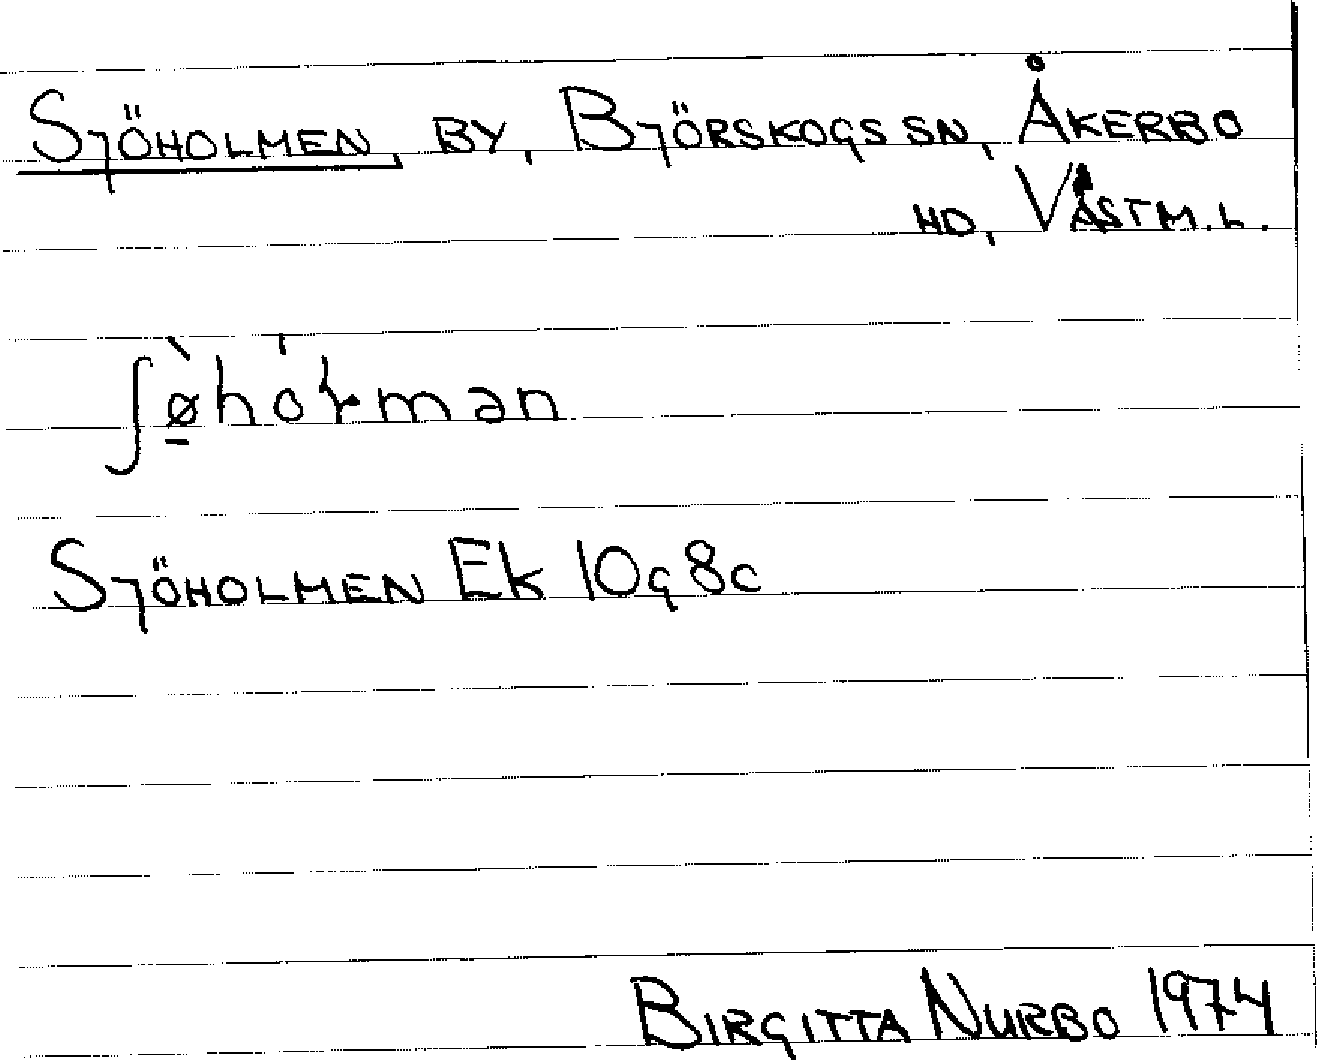 SJÖHOLMEN, BY, BJÖRSKOGS SN, ÅKERBO
HD, VÄSTM.L.
SJÖHOLMEN EK 10g8c
BIRGITTA NURBO 1974